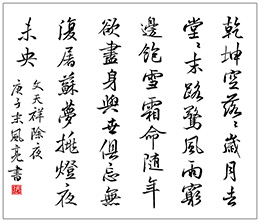 乾坤空落〻歲月去
堂〻末路驚風雨窮
邊飽雪霜命隨年
欲盡身與世俱忘無
復屠蘇夢挑燈夜
未央
文天祥除夜
庚子風亮書